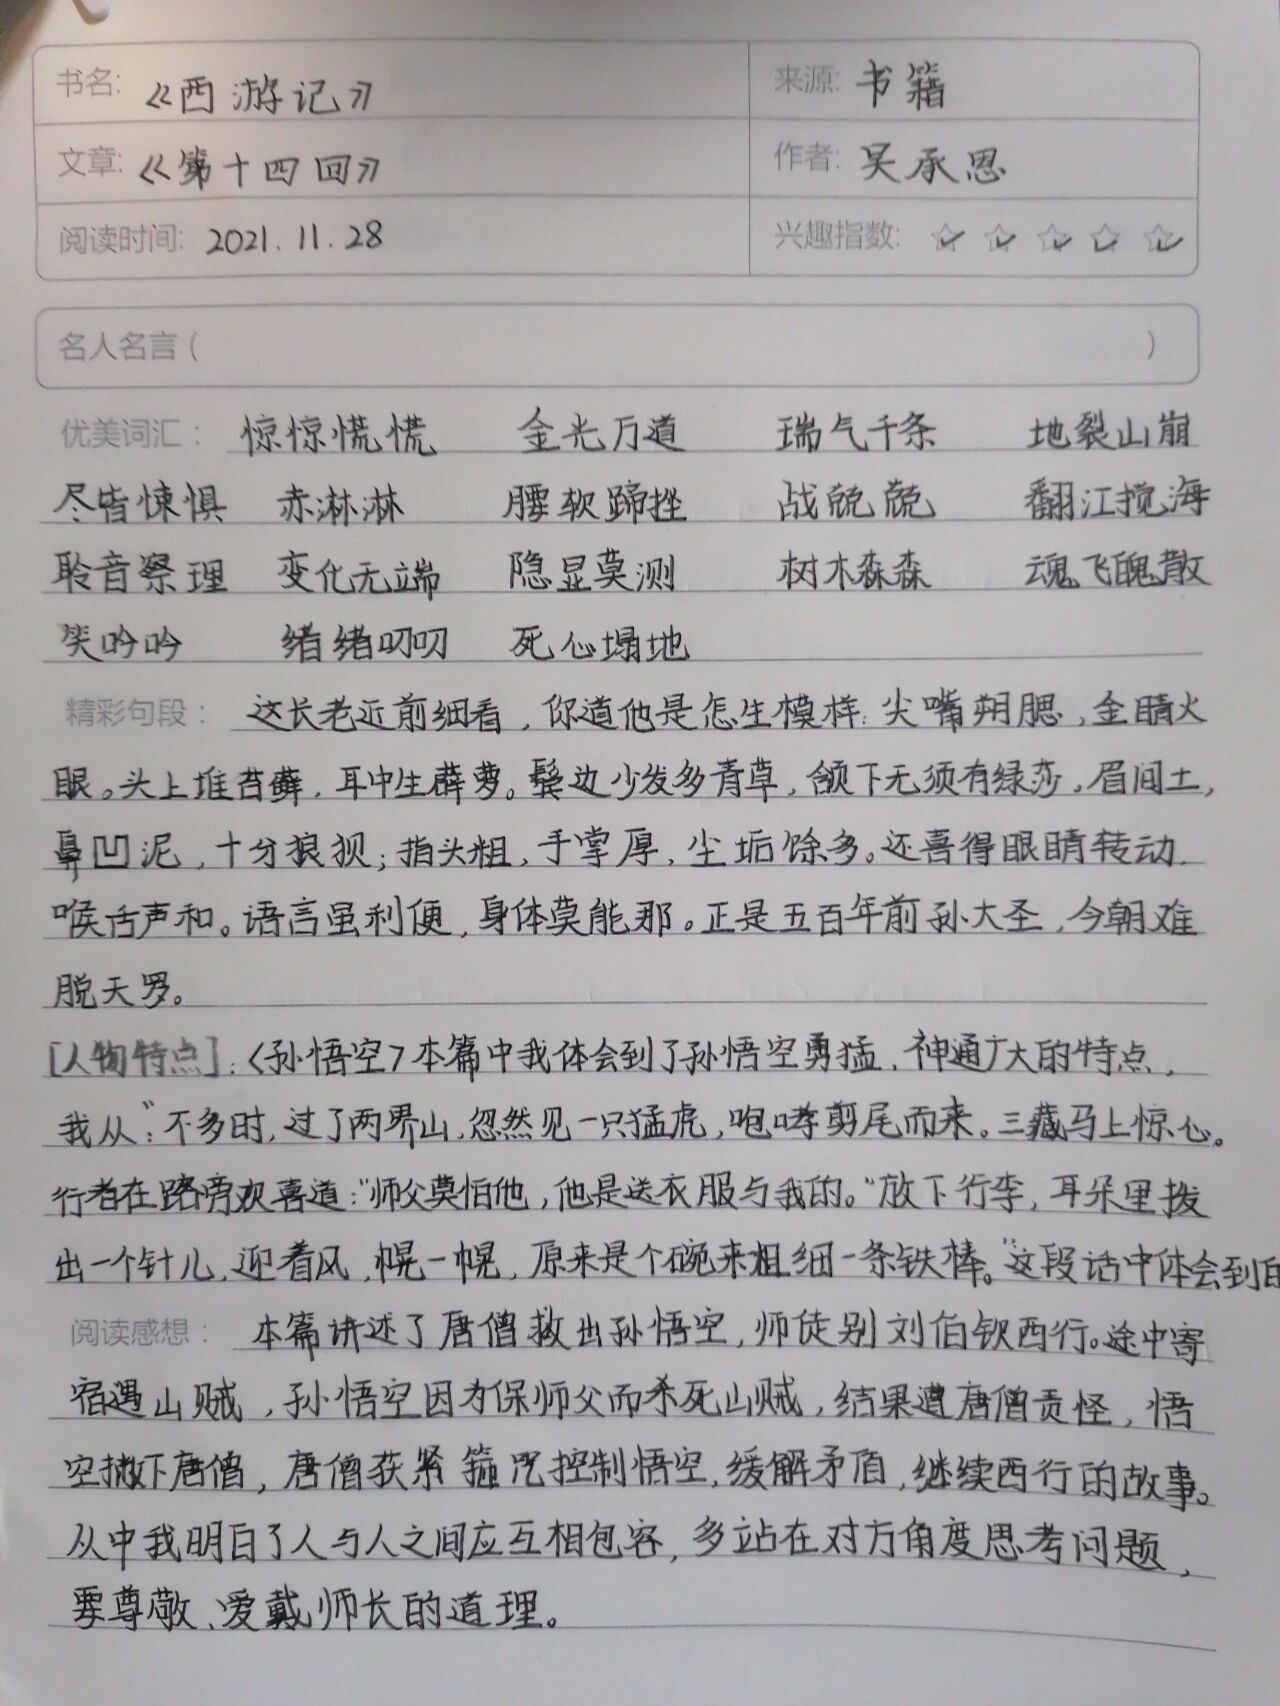 书名: 《西游记》 来源: 书籍
文章: 《第十四回》 作者: 吴承恩
阅读时间: 2021.11.28 兴趣指数:
名人名言 ( )
优美词汇： 惊惊慌慌 金光万道 瑞气千条 地裂山崩
尽皆悚惧 赤淋淋 腰软蹄挫 战兢兢 翻江搅海
聆音察理 变化无端 隐显莫测 树木森森 魂飞魄散
笑吟吟 绪绪叨叨 死心塌地
精彩句段： 这长老近前细看，你道他是怎生模样：尖嘴朔腮，金睛火
眼。头上堆苔藓，耳中生薜萝。鬓边少发多青草，颔下无须有绿莎。眉间土，
鼻凹泥，十分狼狈；指头粗，手掌厚，尘垢馀多。还喜得眼睛转动，
喉舌声和。语言虽利便，身体莫能那。正是五百年前孙大圣，今朝难
脱天罗。
[人物特点]：〈孙悟空〉本篇中我体会到了孙悟空勇猛、神通广大的特点，
我从“：不多时，过了两界山，忽然见一只猛虎，咆哮剪尾而来。三藏马上惊心。
行者在路旁欢喜道：“师父莫怕他，他是送衣服与我的。”放下行李，耳朵里拨
出一个针儿，迎着风，幌一幌，原来是个碗来粗细一条铁棒。”这段话中体会到
阅读感想： 本篇讲述了唐僧救出孙悟空，师徒别刘伯钦西行。途中寄
宿遇山贼，孙悟空因为保师父而杀死山贼，结果遭唐僧责怪，悟
空撇下唐僧，唐僧获紧箍咒控制悟空，缓解矛盾，继续西行的故事。
从中我明白了人与人之间应互相包容，多站在对方角度思考问题，
要尊敬、爱戴师长的道理。